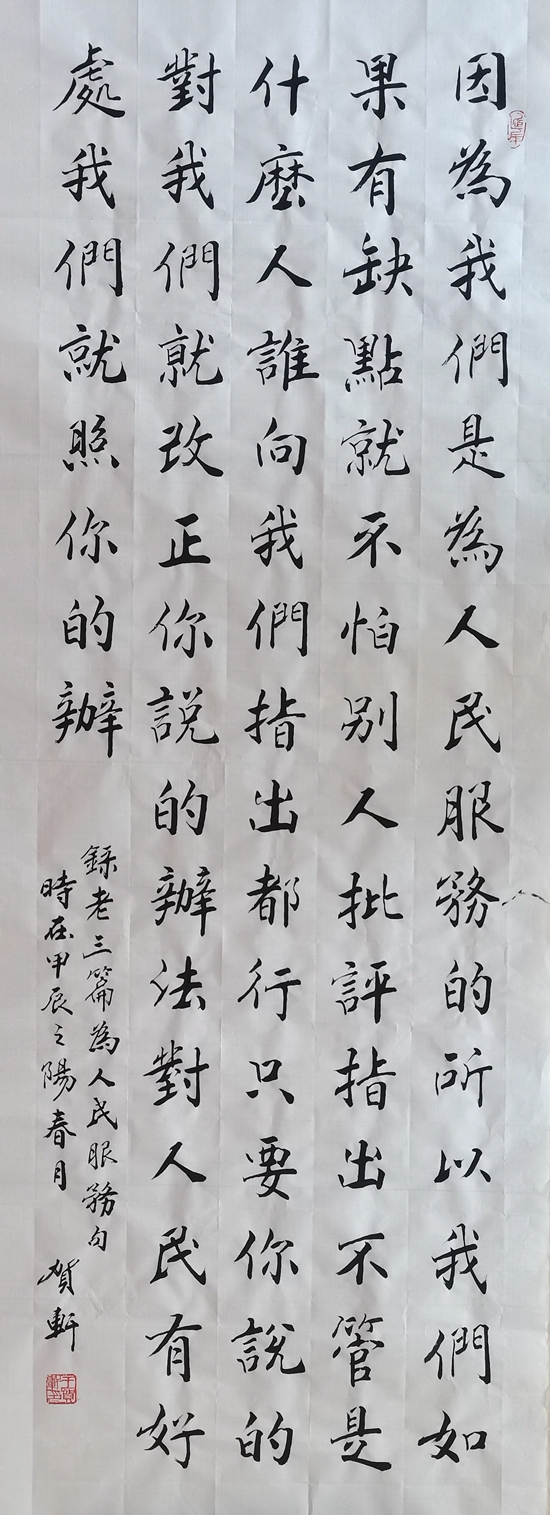 因為我們是為人民服務的所以我們如
果有缺點就不怕别人批評指出不管是
什麼人誰向我們指出都行只要你說的
對我們就改正你說的辦法對人民有好
處我們就照你的辦
録老三篇為人民服務句
時在甲辰之陽春月 賀軒